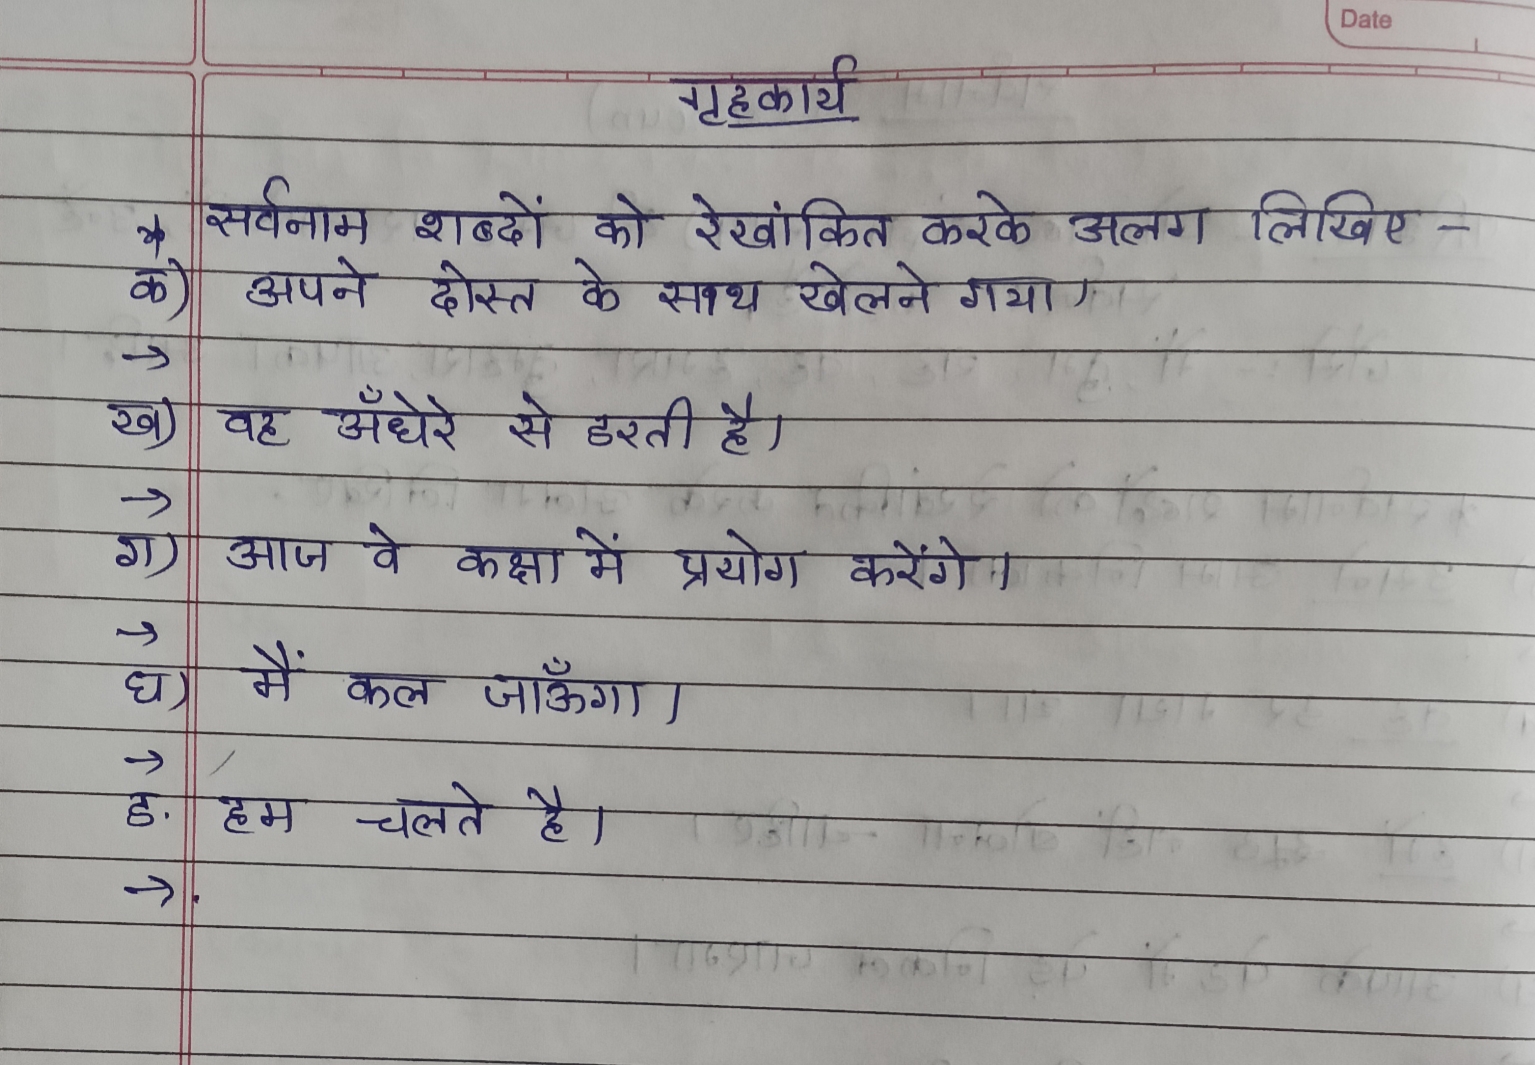 Date
गृहकार्य
* सर्वनाम शब्दों को रेखांकित करके अलग लिखिए -
क) अपने दोस्त के साथ खेलने गया।
→
ख) वह अँधेरे से डरती है।
→
ग) आज वे कक्षा में प्रयोग करेंगे।
→
घ) मैं कल जाऊँगा।
→
ड. हम चलते है।
→